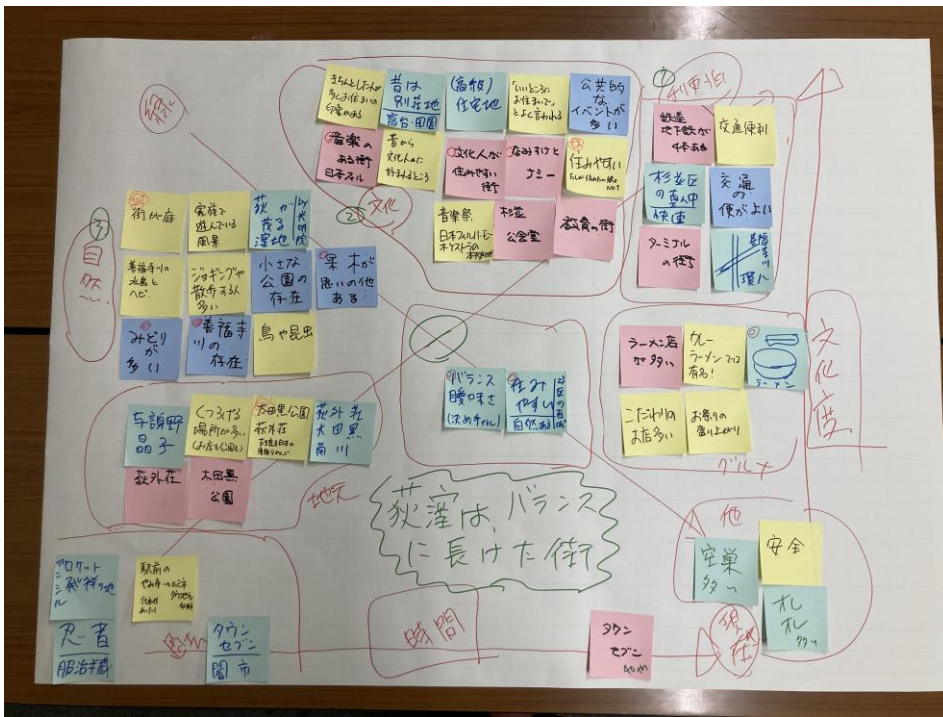 きちんとした人が
多くお住まいの
印象がある
昔は
別荘地
高台・田園
(高級)
住宅地
「いいところに
お住まいで」
とよく言われる
公共的
な
イベントが
多い
音楽の
ある街
日本フィル
昔から
文化人に
好まれるところ
文化人が
住みやすい
街
なみすけと
ナミー
住みやすい
音楽祭
杉並
公会堂
教育の街
②
文化
①
利便
鉄道
地下鉄が
交通便利
杉並区
の真ン中
快速
交通
の
便がよい
ターミナル
の街
環八
③
自然
街が庭
家族で
遊んでいる
風景
荻が
茂る
湿地
善福寺川の
水鳥と
ヘビ
ジョギングや
散歩する人
多い
小さな
公園の
存在
果木が
思いの他
ある!
みどり
が
多い
善福寺
川の
存在
鳥や昆虫
バランス
曖昧さ
住み
やすい
自然ある
ラーメン店
が多い
カレー
ラーメンでは
有名!
ラーメン
こだわりの
お店多い
お祭りの
盛り上がり
グルメ
文化度
与謝野
晶子
くつろげる
場所が多い
(お店も公園も)
大田黒公園
荻外荘
荻外荘
大田黒
角川
荻外荘
大田黒
公園
地元
荻窪は、バランス
に長けた街
他
空巣
多い
安全
オレ
オレ
ロケット
発祥の地
駅前の
忍者
服部半蔵
タウン
セブン
闇市
時間
タウン
セブン
現在